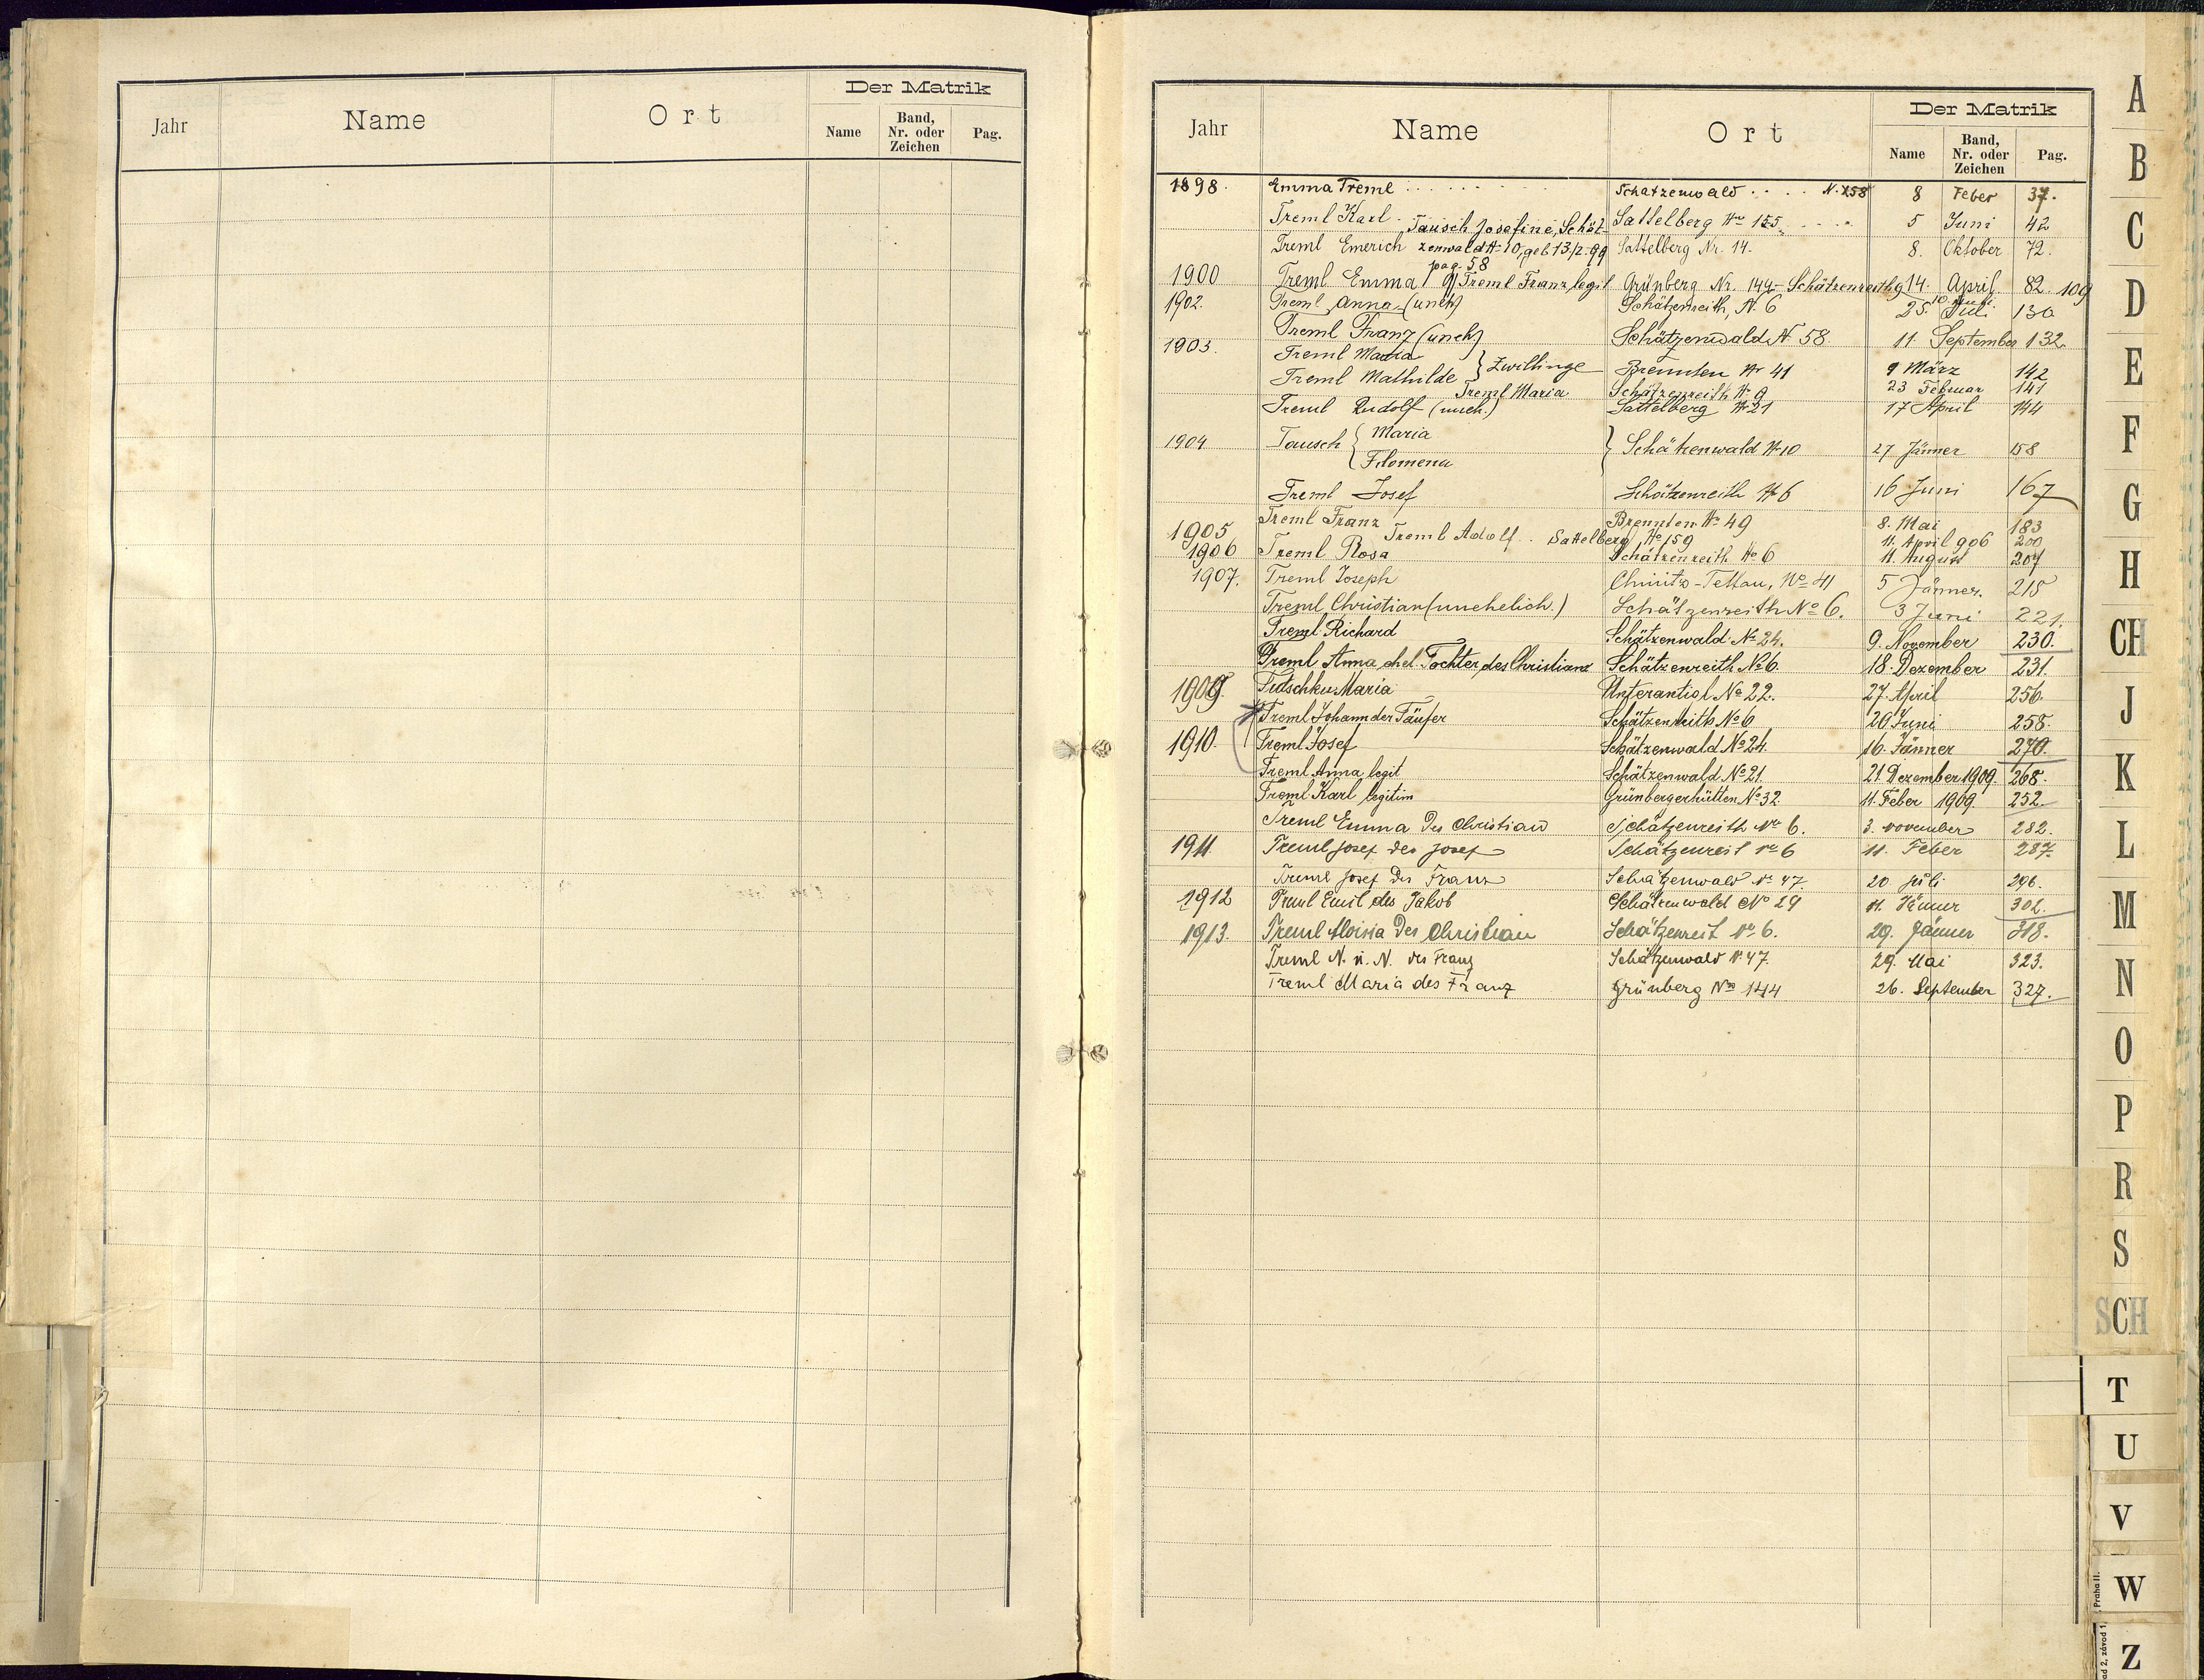 Jahr Name Ort Der Matrik
Name Band, Nr. oder Zeichen Pag.
Jahr Name Ort Der Matrik
Name Band, Nr. oder Zeichen Pag.
1898. Emma Treml Schatzenwald N. 258 8 Feber 37.
Treml Karl Sattelberg Nr 155 5 Juni 42
Tausch Josefine, Schät-
Treml Emerich Sattelberg Nr. 14. 8. Oktober 72.
zenwald N 10, geb 13/2. 99
pag. 58
1900 Treml Emma Treml Franz, legit Grünberg Nr. 144 - Schätzenreith 9 14. April 82. 109
10. Juni
1902. Treml Anna (uneh) Schätzenreith, N. 6 25. Juli 130
Treml Franz (uneh) Schätzenwald N 58. 11. September 132.
1903. Treml Maria
Treml Mathilde } Zwillinge Brennten Nr 41 9 März 142
Treml Maria Schätzenreith Nr 9 23 Februar 141
Treml Rudolf (uneh.) Sattelberg Nr 21 17 April 144
1904 Tausch { Maria
Filomena } Schätzenwald Nr 10 27 Jänner 158
Treml Josef Schätzenreith Nr 6 16 Juni 167
1905 Treml Franz Brennten No 49 8. Mai 183
Treml Adolf .. Sattelberg No 159 11. April 906 200
1906 Treml Rosa Schätzenreith No 6 11. August 207
1907. Treml Joseph Chinitz-Tettau, No 41 5 Jänner. 215
Treml Christian (unehelich.) Schätzenreith No 6. 3 Juni 221.
Treml Richard Schätzenwald No 24. 9. November 230.
Treml Anna, ehel. Tochter des Christians Schätzenreith No 6. 18. Dezember 231.
1909. Maria Unterantigl No 22. 27. April 256.
Treml Johann der Täufer Schätzenreith No 6 20 Juni 258.
1910. Treml Josef Schätzenwald No 24. 16. Jänner 270.
Treml Anna legit Schätzenwald No 21. 21. Dezember 1909. 268.
Treml Karl legitim Grünbergerhütten No 32. 11. Feber 1909. 252.
Treml Emma des Christian Schätzenreith No 6. 3. November 282.
1911 Treml Josef des Josef Schätzenreit No 6 11. Feber 287.
Treml Josef des Franz Schätzenwald No 47. 20 Juli 296.
1912 Treml Emil des Jakob Schätzenwald No 29 11. Jänner 302.
1913. Treml Aloisia des Christian Schätzenreit No 6. 29. Jänner 318.
Treml N. u. N. des Franz Schätzenwald No 47. 29. Mai 323.
Treml Maria des Franz Grünberg No 144 26. September 327.
A
B
C
D
E
F
G
H
CH
J
K
L
M
N
O
P
R
S
SCH
T
U
V
W
Z
Praha II.
ad 2, závod 1